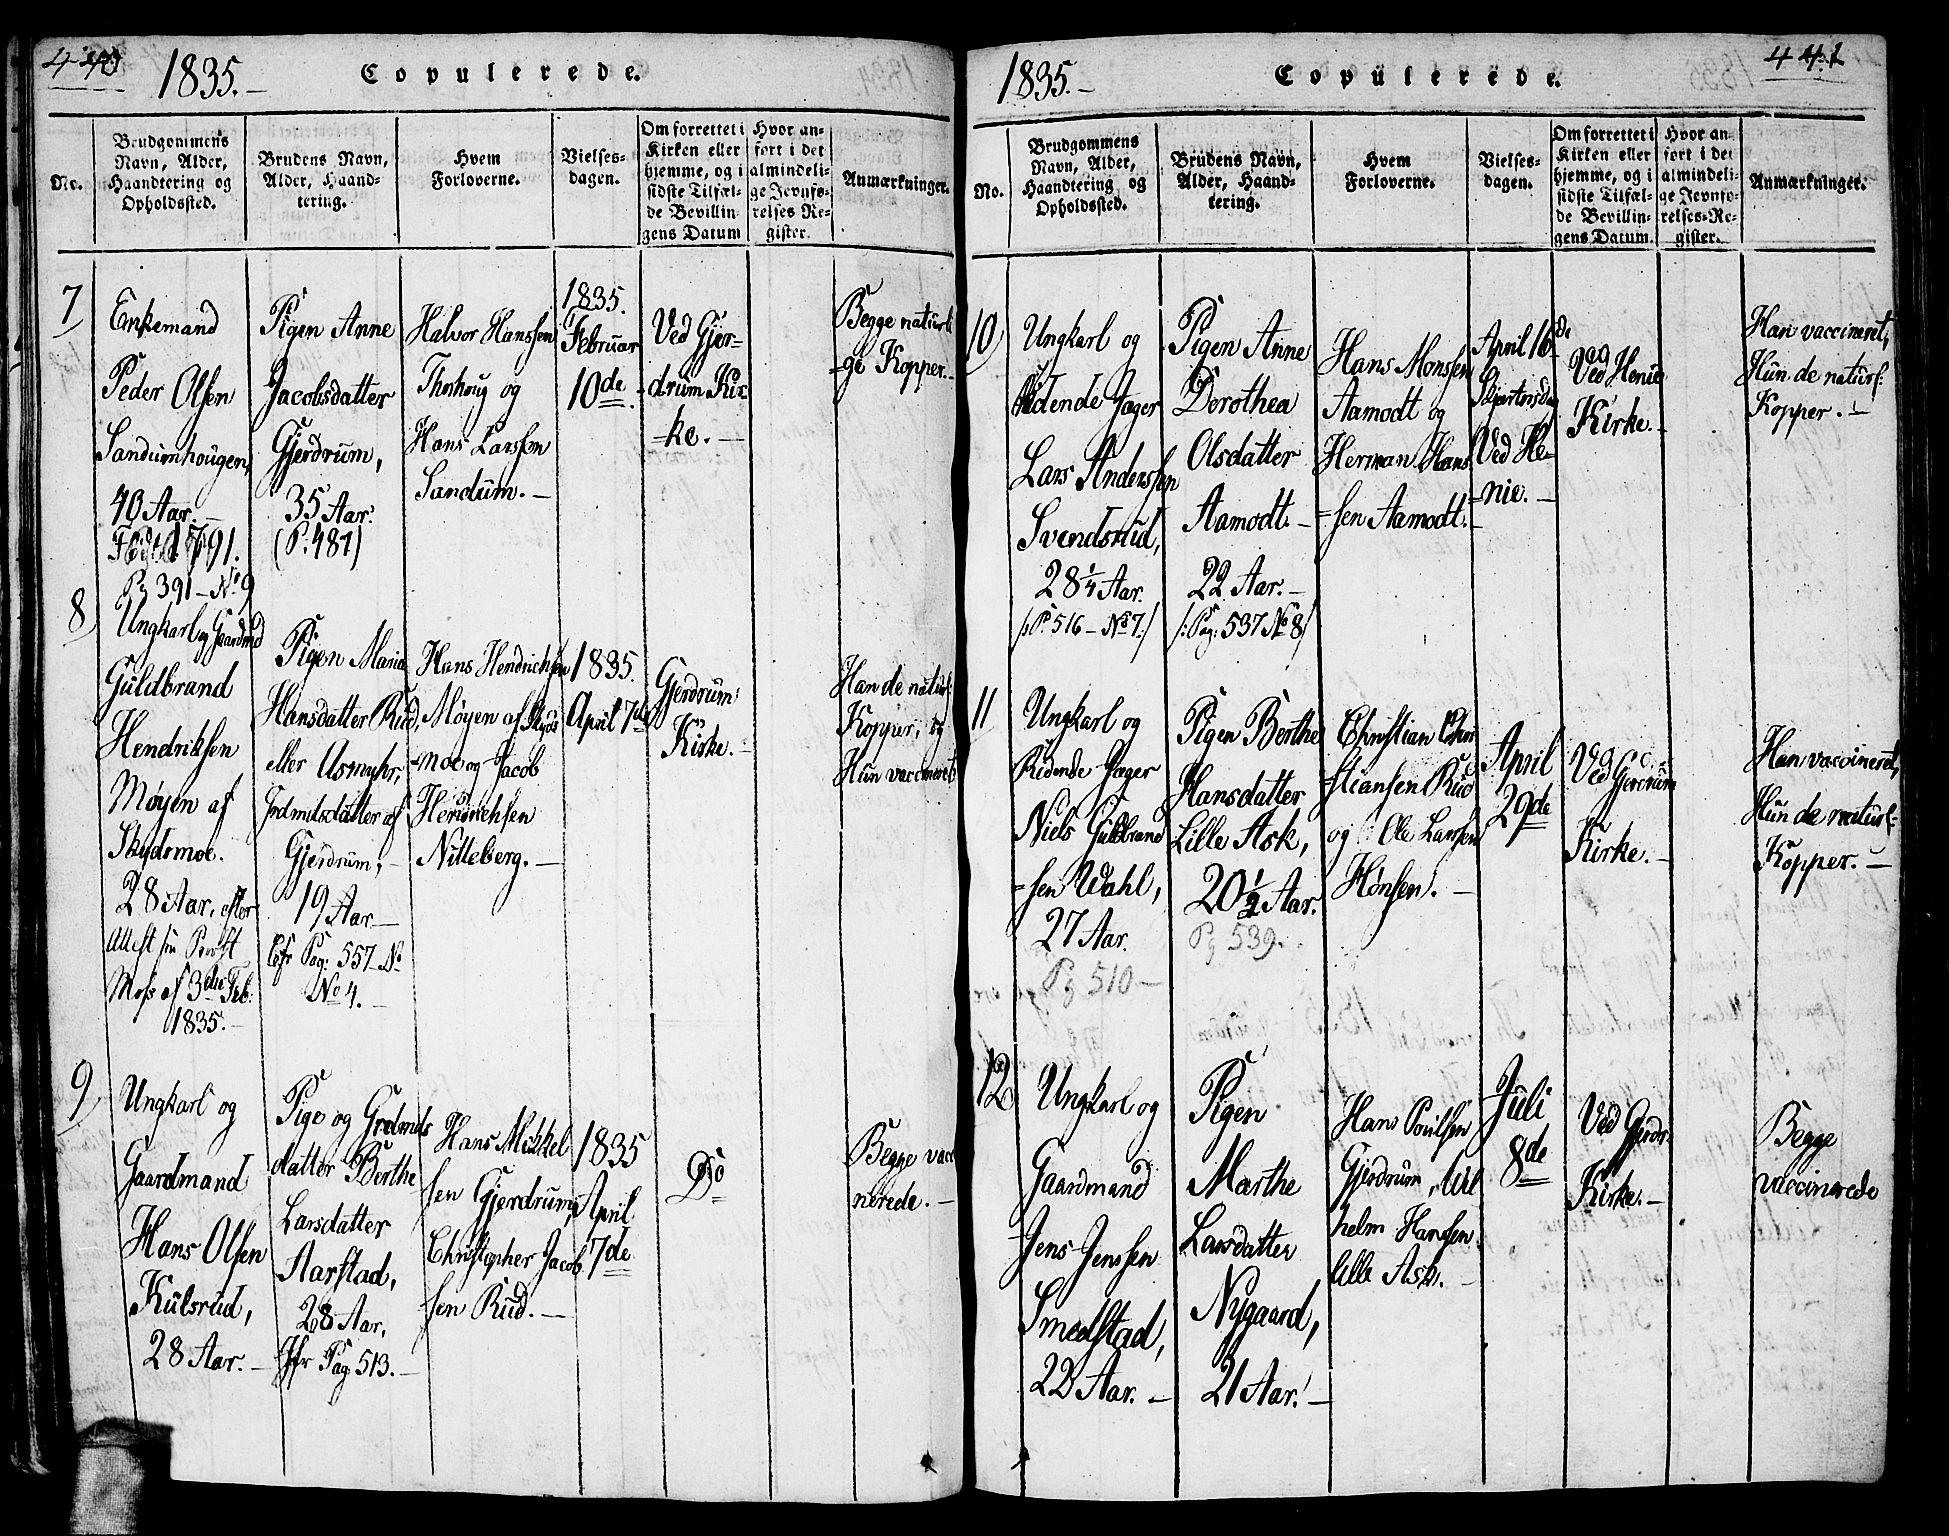 440
1835.
Copulerede.
No.
Brudgommens
Navn, Alder,
Haandtering og
Opholdssted.
Brudens Navn,
Alder, Haand-
tering.
Hvem
Forloverne.
Vielses-
dagen.
Om forrettet i
Kirken eller
hjemme, og i
sidste Tilfæl-
de Bevillin-
gens Datum
Hvor an-
ført i det
almindeli-
ge Jevnfø-
relses Re-
gister.
Anmærkninger.
7
Enkemand
Peder Olsen
Sandumhougen,
40 Aar.
Født 1791.
Pg 391 - No 9
Pigen Anne
Jacobsdatter
Gjerdrum,
35 Aar.
(P. 487)
Halvor Hanssen
og
Hans Larssen
Sandum. -
1835.
Februar
10de
Ved Gjer-
drum Kir-
ke. -
Begge naturli-
ge Kopper. -
8
Ungkarl og Gaardmd
Guldbrand
Hendriksen
Møyen af
Skydsmoe.
28 Aar, efter
Attest fra Provst
Moss af 3die Feb:
1835. -
Pigen Maria
Hansdatter Rud,
eller
Grdmdsdatter af
Gjerdrum, -
19 Aar -
Cfr Pag: 557 - No
No 4. -
Hans Hendrichsen
Møyen af Skyds-
moe og Jacob
Hendrichsen
Nitteberg. -
1835.
April 7de
Gjerdrum
Kirke. -
Han de naturl:
Kopper, og
Hun vaccineret
9
Ungkarl og
Gaardmand
Hans Olsen
Kulsrud,
28 Aar. -
Pige og Grdmds
datter Berthe
Larsdatter
Aarstad,
28 Aar,
Jfr Pag. 513. -
Hans Mikkel
sen Gjerdrum,
Christopher Jacob
sen Rud. -
1835
April
7de
Do
Begge vacc
nerede. -
441
1835. -
Copulerede.
No.
Brudgommens
Navn, Alder,
Haandtering og
Opholdssted.
Brudens Navn,
Alder, Haand-
tering.
Hvem
Forloverne.
Vielses-
dagen.
Om forrettet i
Kirken eller
hjemme, og i
sidste Tilfæl-
de Bevillin-
gens Datum.
Hvor an-
ført i det
almindeli-
ge Jevnfø-
relses-Re-
gister.
Anmærkninger.
10
Ungkarl og
Ridende Jæger
Lars Anderssen
Svendsrud,
28 1/4 Aar.
/: P. 516 - No 7:/
Pigen Anne
Dorothea
Olsdatter
Aamodt. -
22 Aar. -
/: Pag: 537 No 8/
Hans Monsen
Aamodt og
Herman Hans
sen Aamodt. -
April 16de
Skjertorsdag
Ved He-
nie. -
Ved Henie
Kirke. -
Han vaccineret,
Hun de naturl:
Kopper. -
11
Ungkarl og
Ridende Jæger
Niels Guldbrand
sen Wahl,
27 Aar.
Pg 510 -
Pigen Berthe
Hansdatter
Lille Ask,
20 1/2 Aar.
Pg 539.
Christian Chri
stiansen Rud
og Ole Larssen
Hønsen. -
April
29de
Ved Gjerdrum
Kirke. -
Han vaccineret,
Hun de naturl:
Kopper. -
12
Ungkarl og
Gaardmand
Jens Jenssen
Smedstad,
22 Aar. -
Pigen
Marthe
Larsdatter
Nygaard,
21 Aar. -
Hans Poulsen
Gjerdrum, Wil
helm Hansen
lille Ask. -
Juli
8de
Ved Gjerdr:
Kirke. -
Begge
vaccinerede